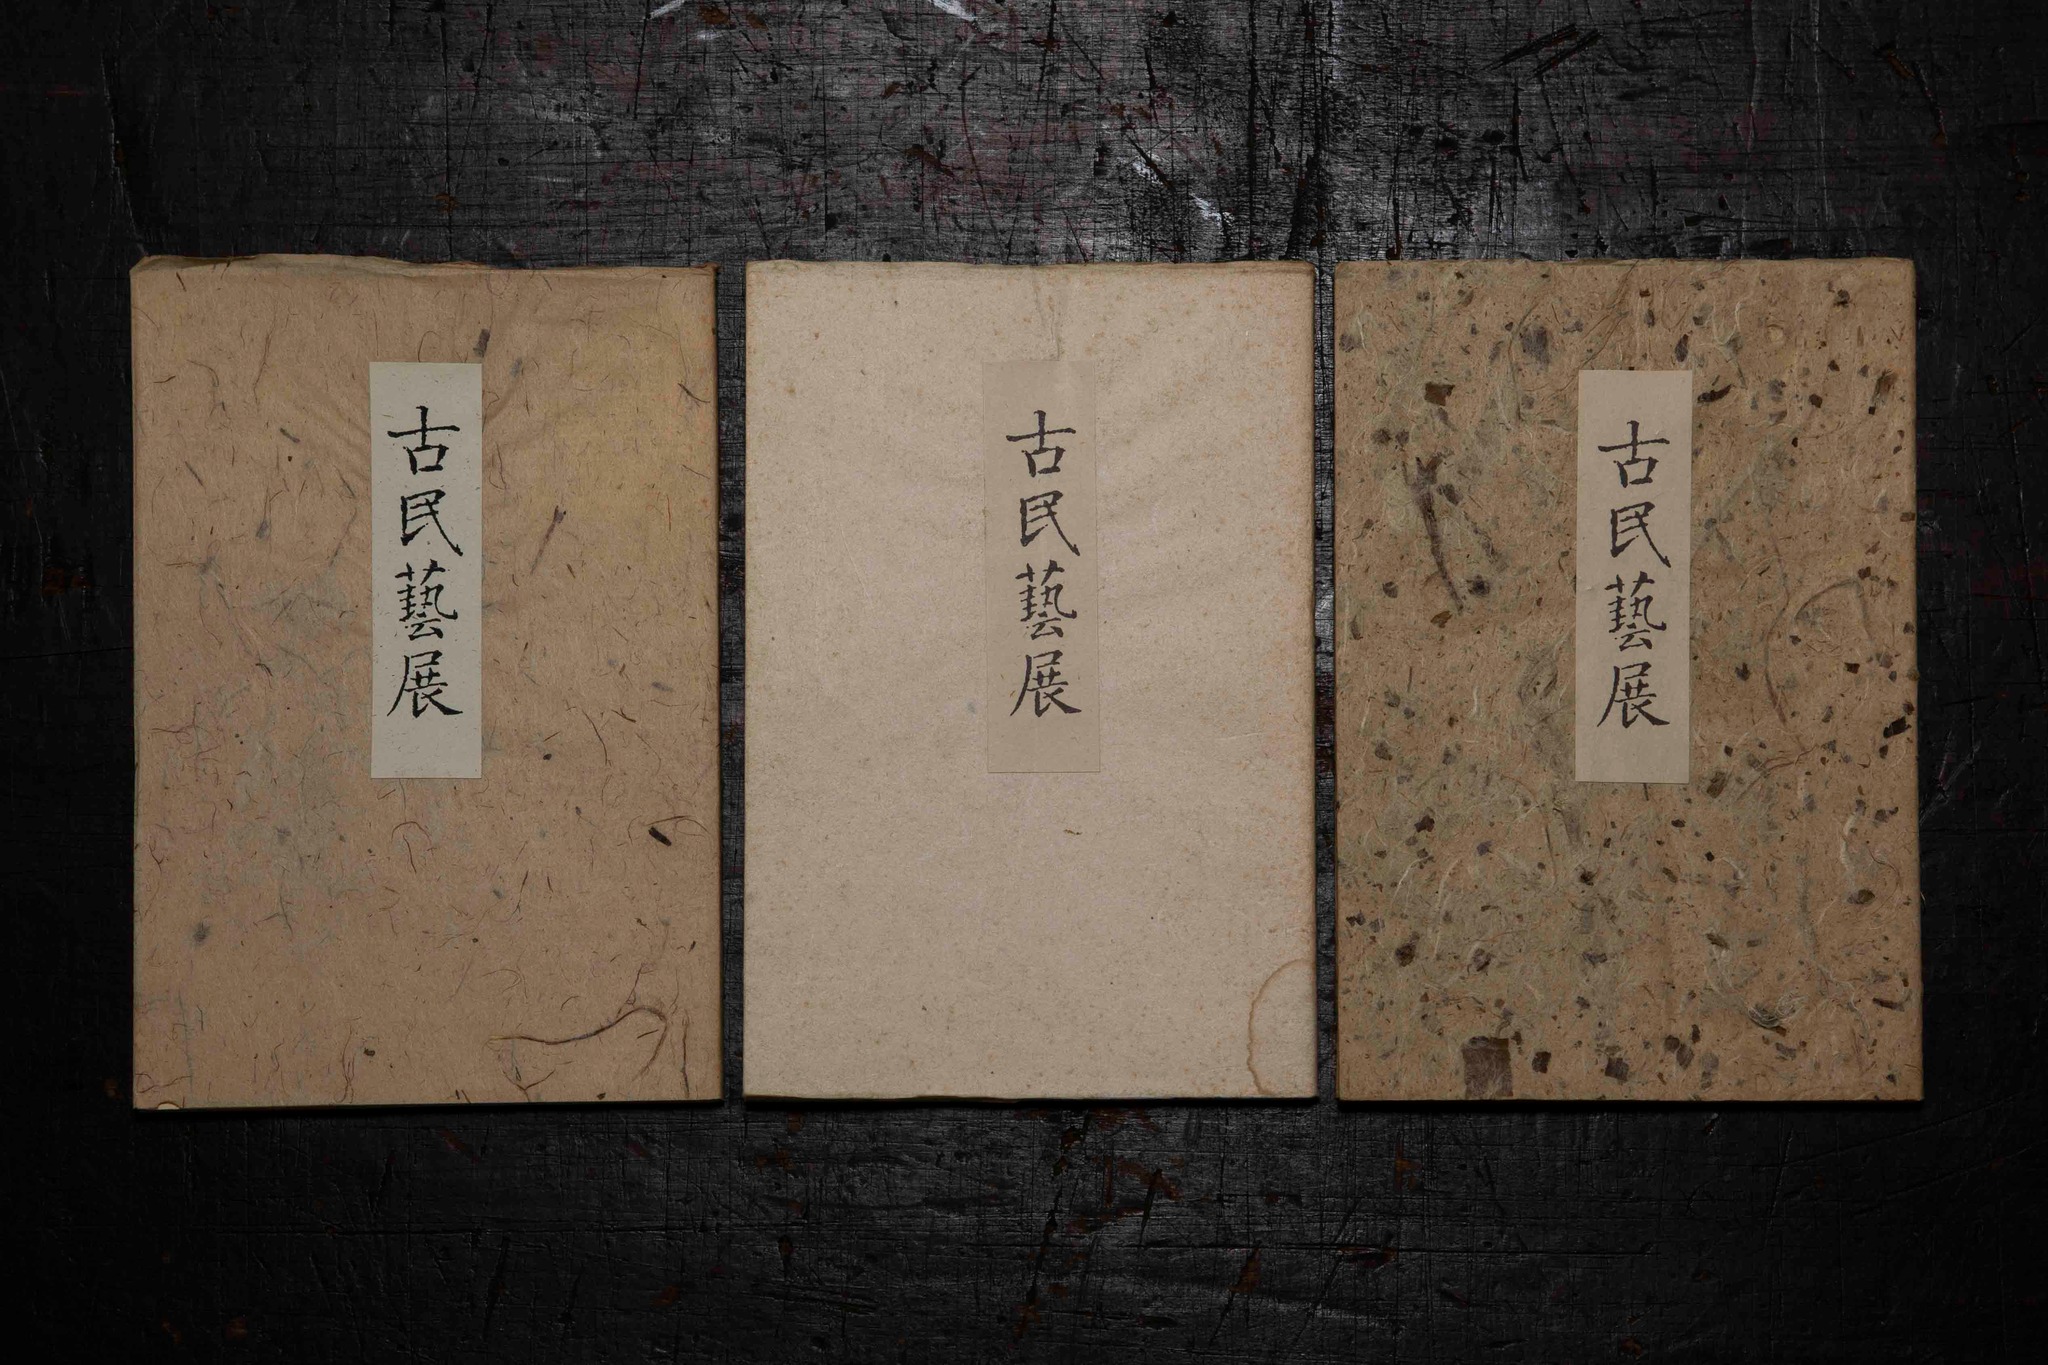 古民藝展
古民藝展
古民藝展